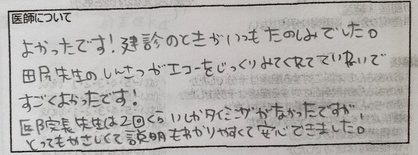 医師について
よかったです！健診のときがいつもたのしみでした。
田尻先生のしんさつがエコーをじっくりみてくれてていねいで
すごくよかったです！
院長先生は2回くらいしかタイミングがなかったですが、
とってもやさしくて説明もわかりやすくて安心できました！